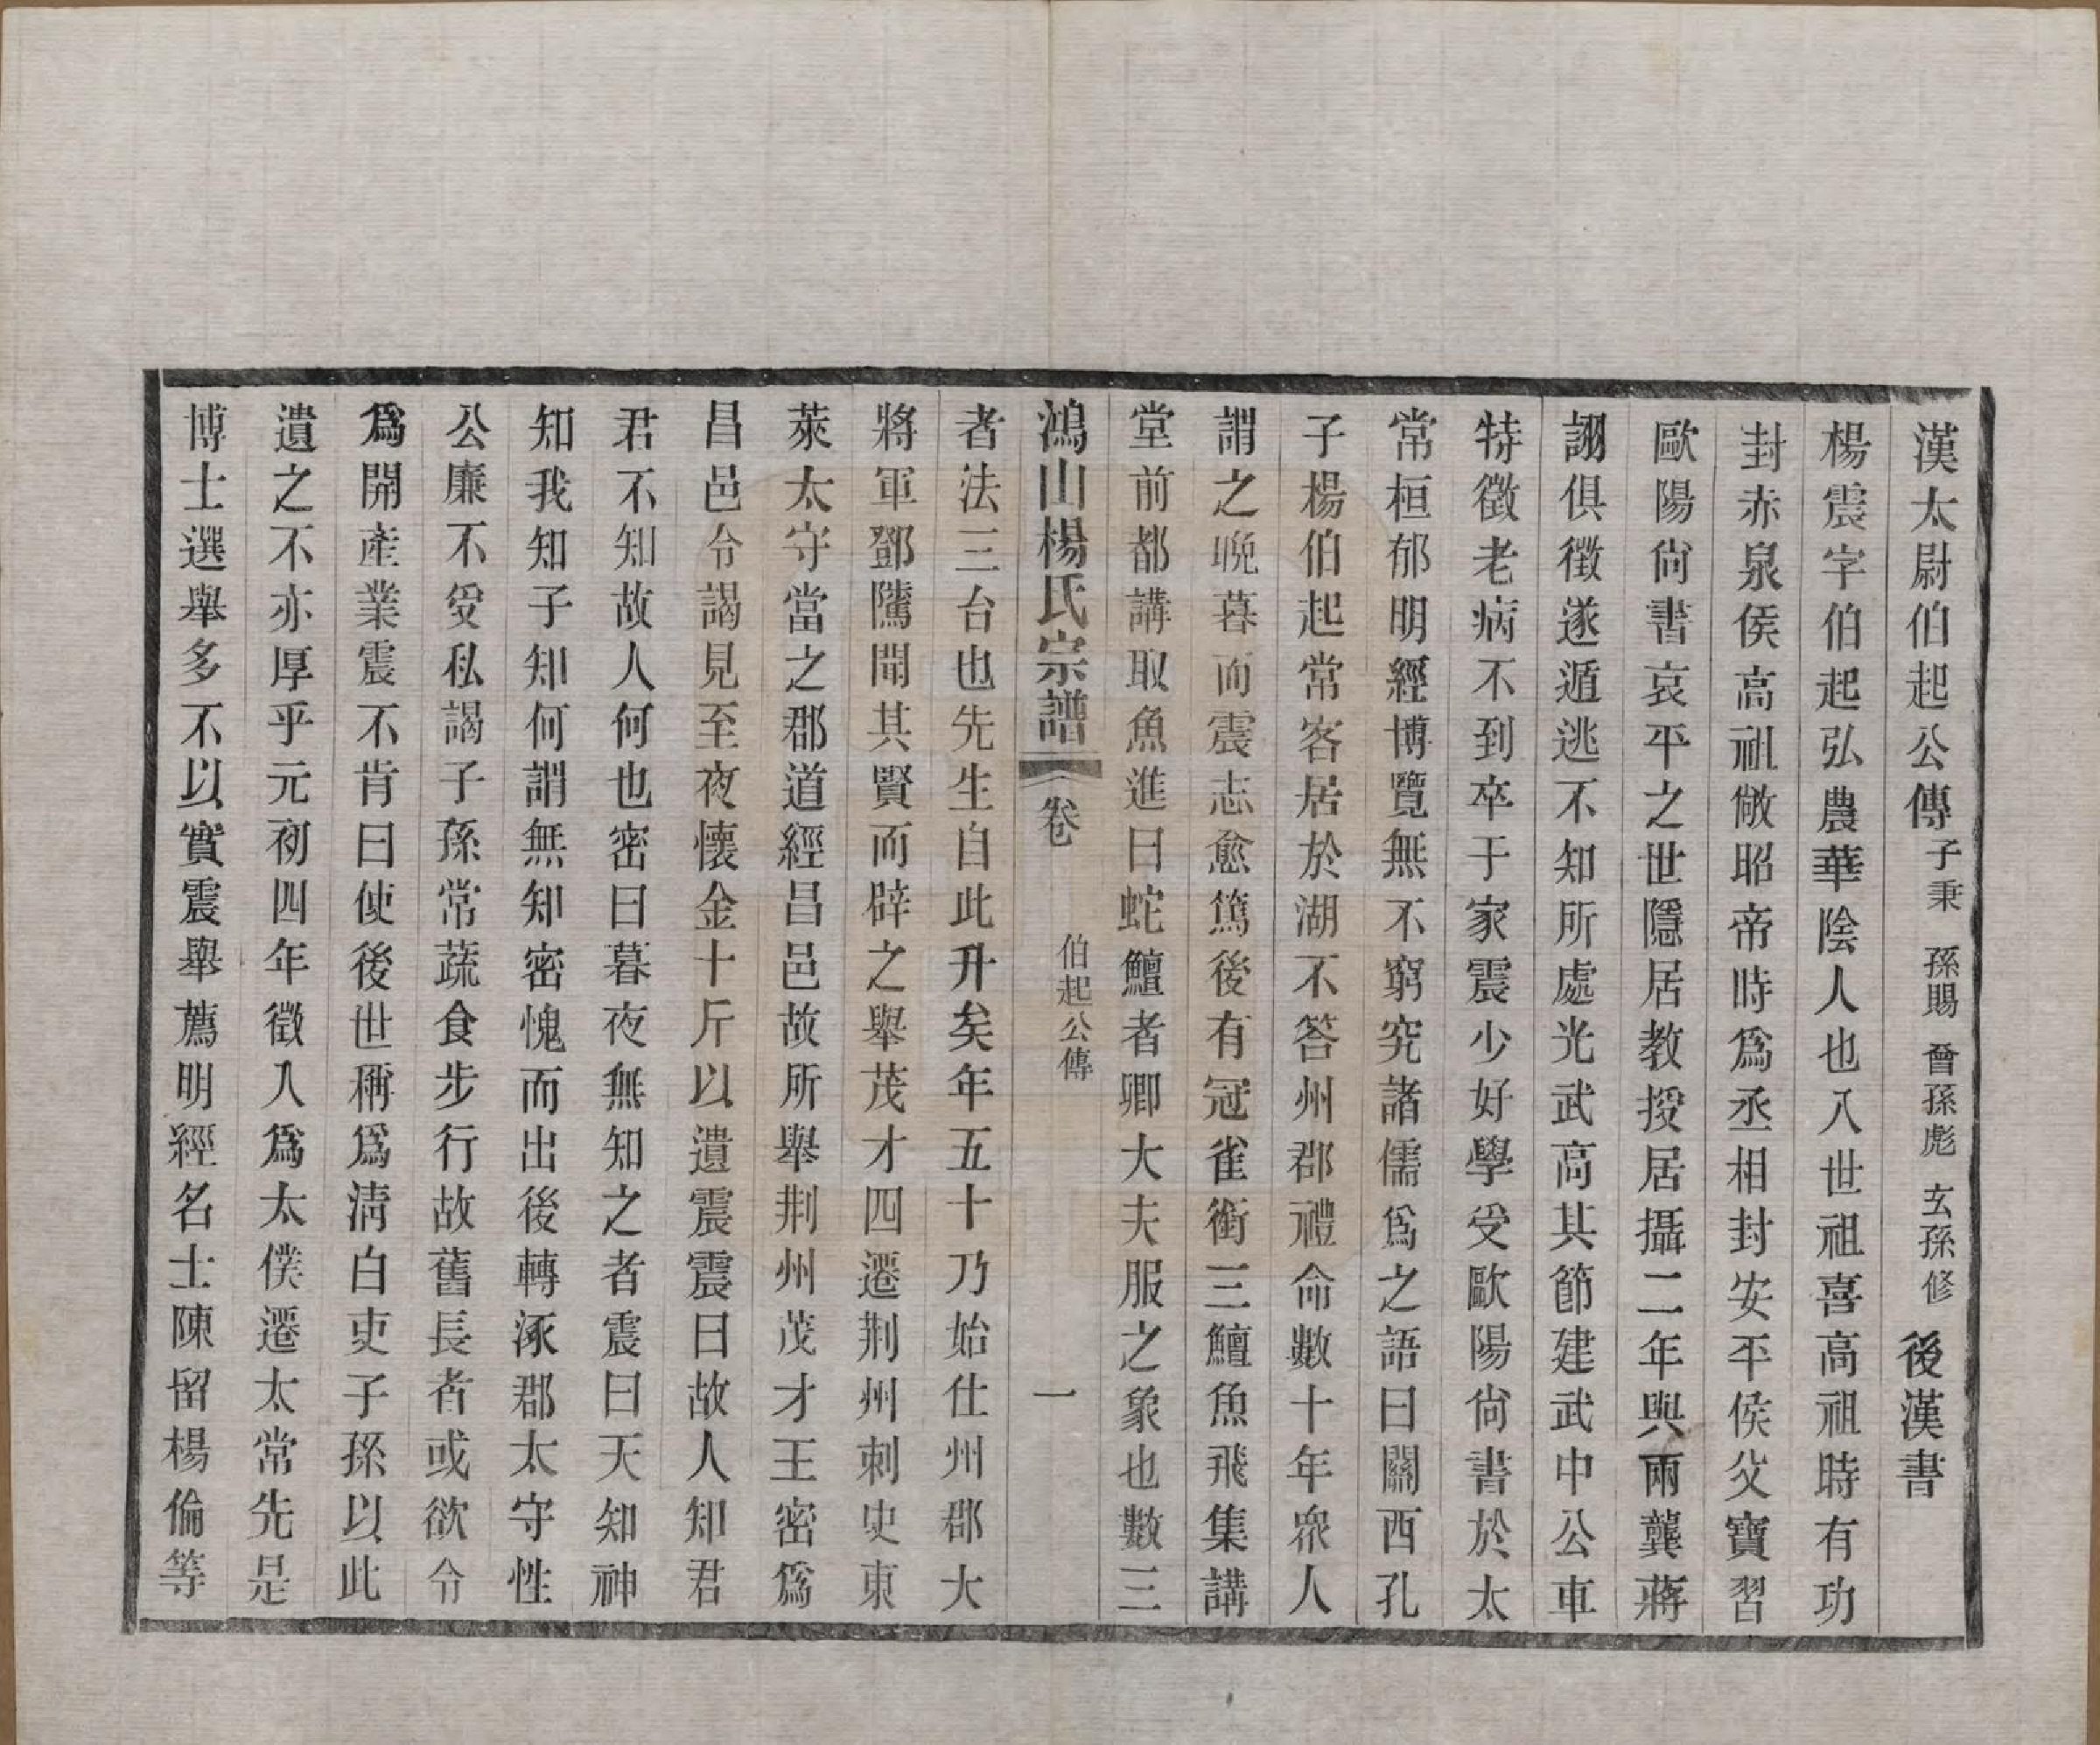 漢太尉伯起公傳子秉 孫賜 曾孫彪 玄孫修 後漢書
楊震字伯起弘農華陰人也八世祖喜高祖時有功
封赤泉侯高祖敞昭帝時爲丞相封安平侯父寶習
歐陽尚書哀平之世隱居教授居攝二年與兩龔蔣
詡俱徵遂遁逃不知所處光武高其節建武中公車
特徵老病不到卒于家震少好學受歐陽尚書於太
常桓郁明經博覽無不窮究諸儒爲之語曰關西孔
子楊伯起常客居於湖不答州郡禮命數十年衆人
謂之晚暮而震志愈篤後有冠雀銜三鱣魚飛集講
堂前都講取魚進曰蛇鱣者卿大夫服之象也數三
鴻山楊氏宗譜 卷 伯起公傳 一
者法三台也先生自此升矣年五十乃始仕州郡大
將軍鄧騭聞其賢而辟之舉茂才四遷荆州刺史東
萊太守當之郡道經昌邑故所舉荆州茂才王密爲
昌邑令謁見至夜懷金十斤以遺震震曰故人知君
君不知故人何也密曰暮夜無知之者震曰天知神
知我知子知何謂無知密愧而出後轉涿郡太守性
公廉不受私謁子孫常蔬食步行故舊長者或欲令
爲開產業震不肯曰使後世稱爲清白吏子孫以此
遺之不亦厚乎元初四年徵入爲太僕遷太常先是
博士選舉多不以實震舉薦明經名士陳留楊倫等